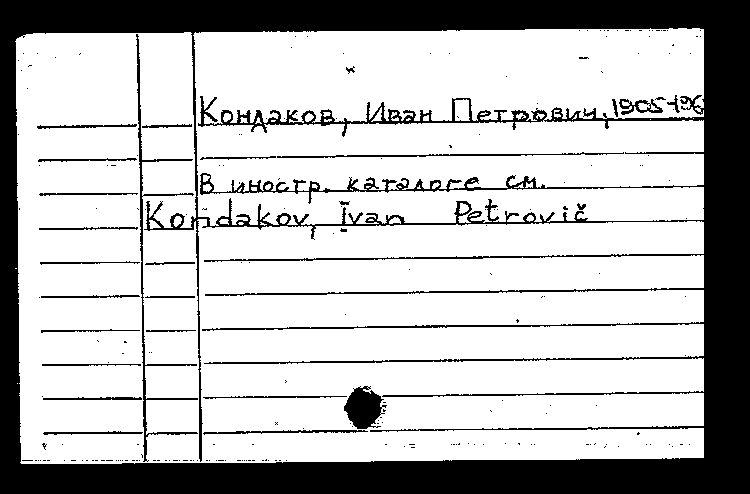 Кондаков, Иван Петрович, 1905-196
В иностр. каталоге см.
Kondakov, Ivan Petrovič